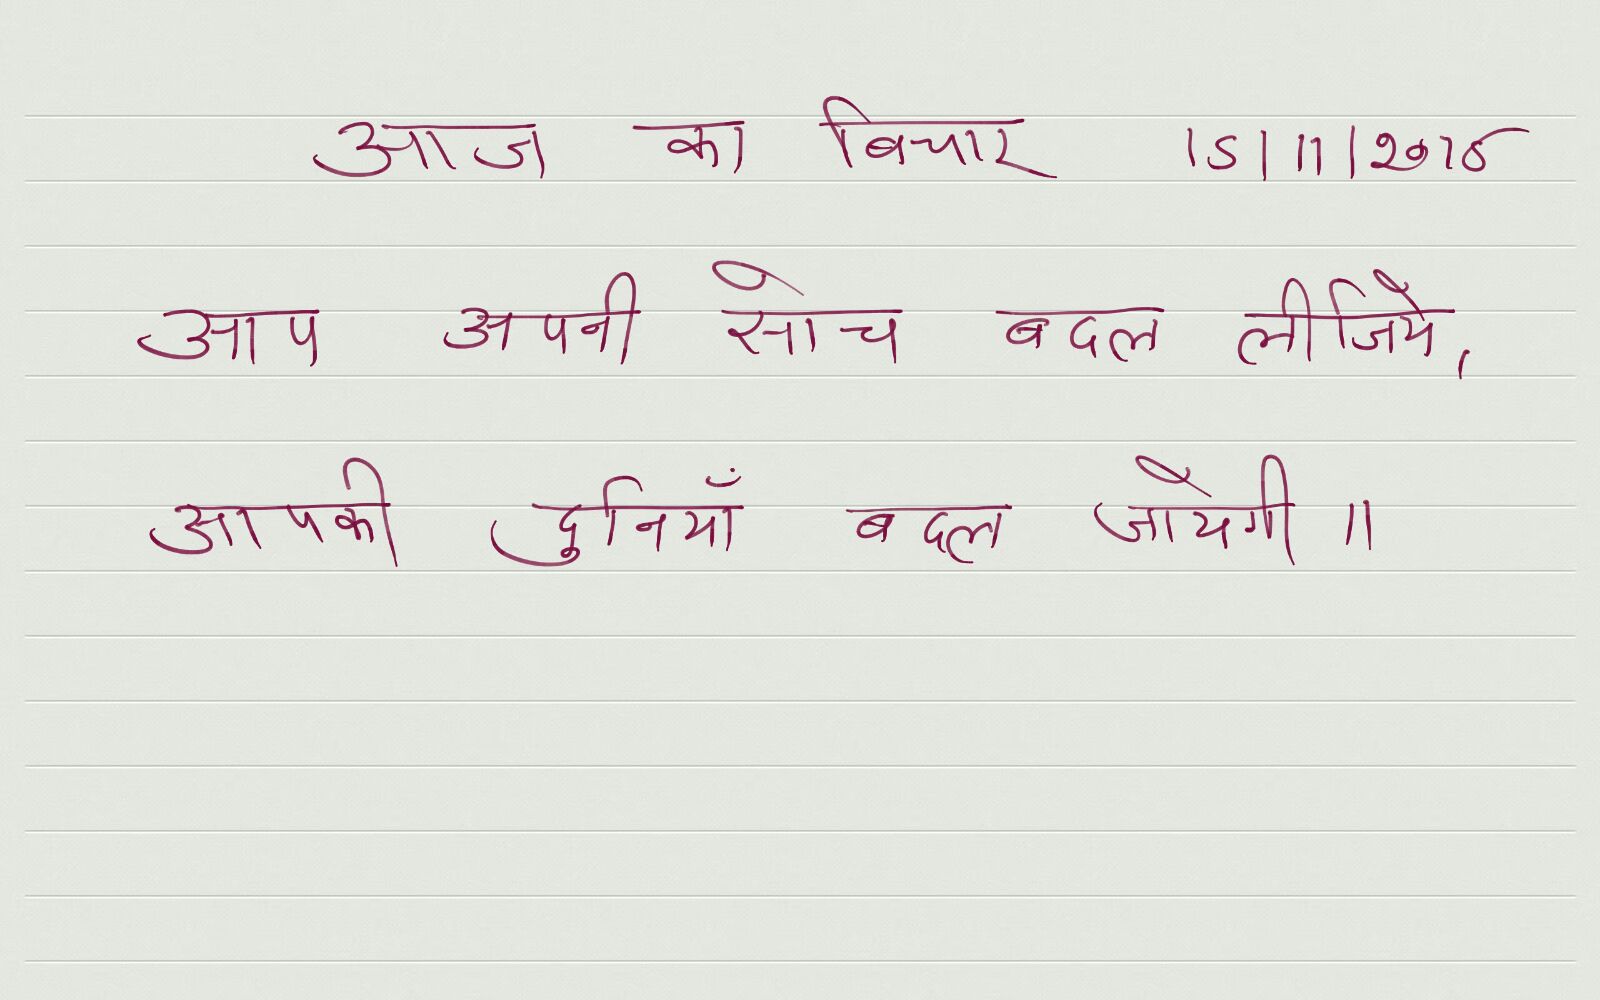 आज का विचार 15/11/2018
आप अपनी सोच बदल लीजिये,
आपकी दुनियाँ बदल जायेगी ॥